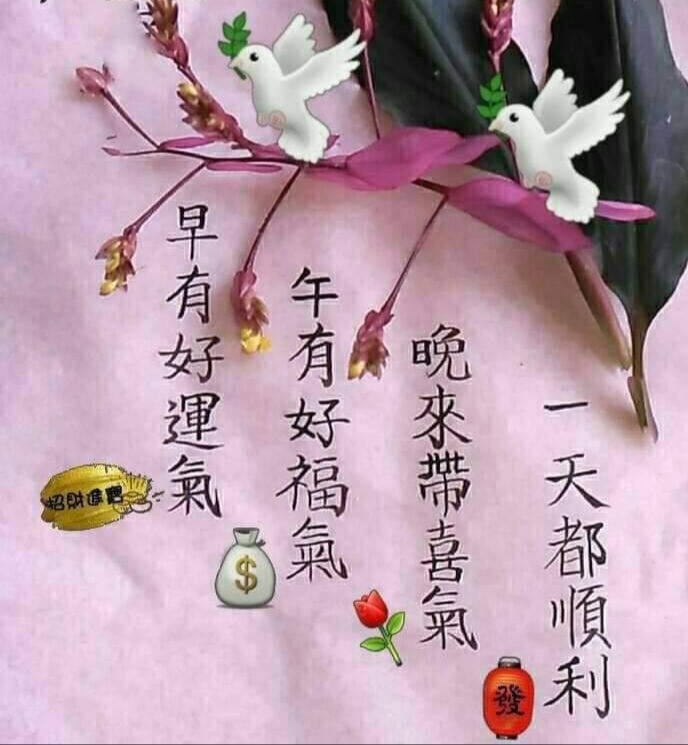 早有好運氣
午有好福氣
晚來帶喜氣
一天都順利
招財進寶
發